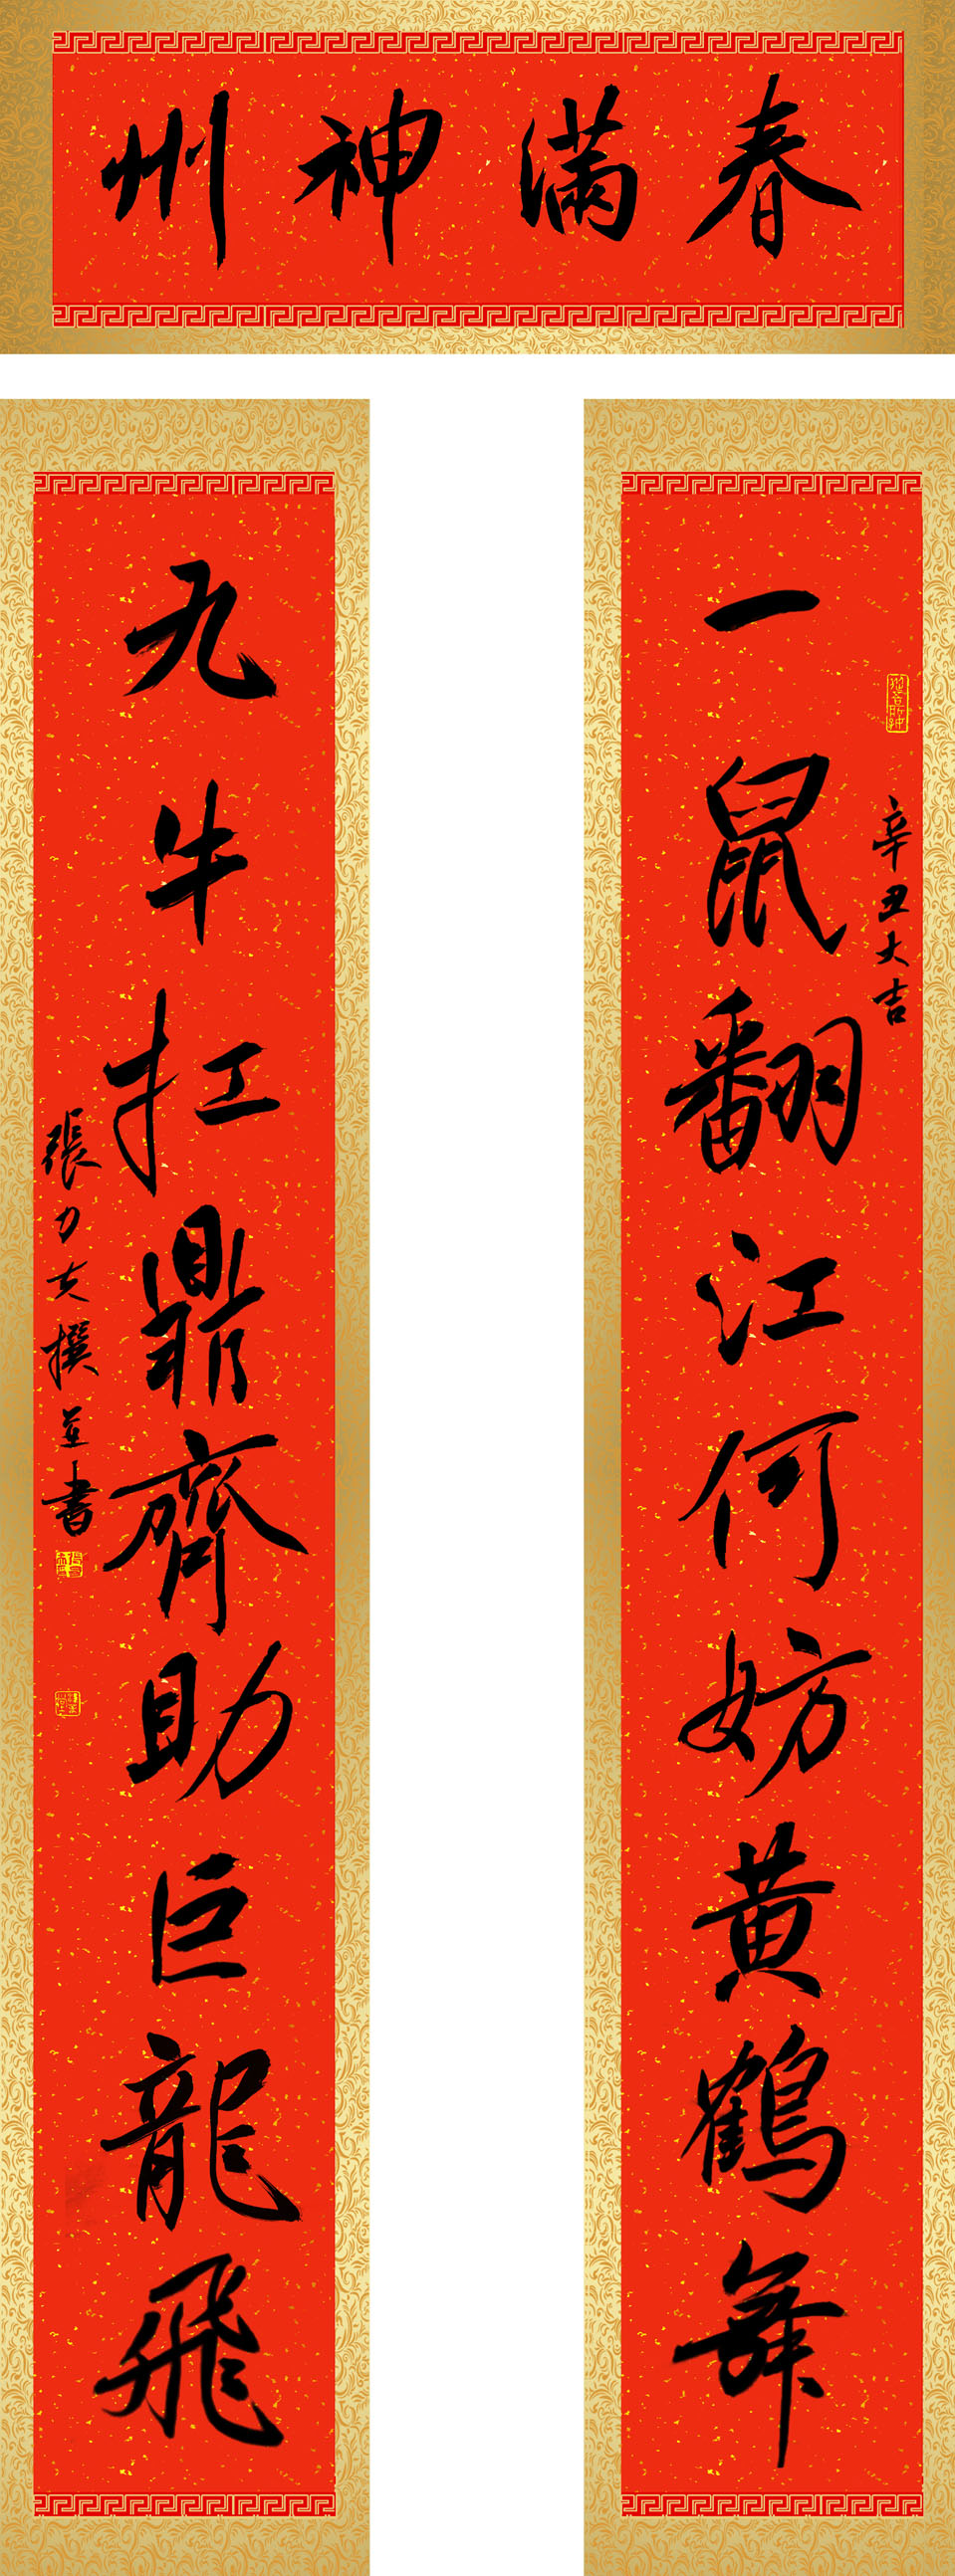 春满神州
一鼠翻江何妨黄鹤舞
辛丑大吉
九牛扛鼎齊助巨龍飛
張力夫撰並書